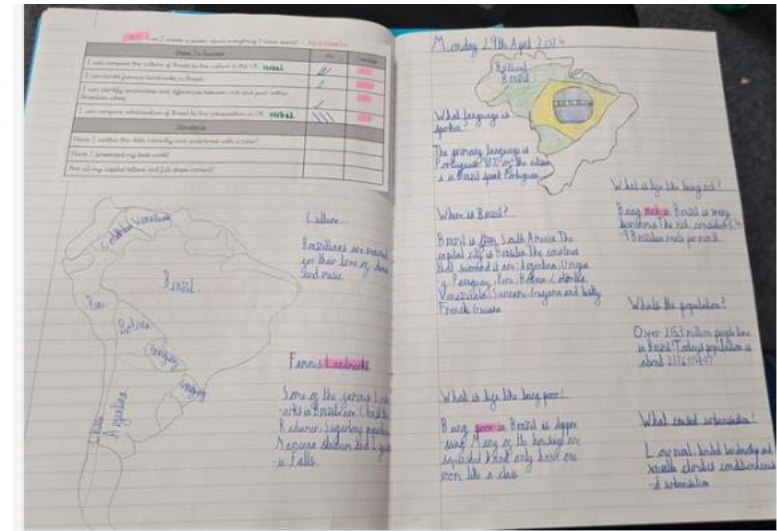 can I create a poster about everything I have learnt?
Steps To Success
Me
Teacher
I can compare the culture of Brazil to the culture in the UK. verbal
I can locate famous landmarks in Brazil.
I can identify similarities and differences between rich and poor within
Brazilian cities.
I can compare urbanisation of Brazil to the urbanisation in UK. verbal
Standards
Have I written the date correctly and underlined with a ruler?
Have I presented my best work?
Are all my capital letters and full stops correct?
Venezuela
Brazil
Peru
Bolivia
Paraguay
Uruguay
Chile
Argentina
Culture
Brazilians are
for their love of dance
and music
Famous Landmarks
Some of the famous Land
-arks in Brazil are: Christ the
Redeemer, Sugarloaf
stadium and
-u Falls
Monday 29th April 2024
Brilliant
Brazil
What language is
spoken?
The primary language is
Portuguese. 98% of the
in Brazil speak Portuguese
Where is Brazil?
Brazil is in South America. The
capital city is Brasilia. The countries
that surround it are: Argentina, Urugua
-y, Paraguay, Peru, Bolivia, Colombia,
Venezuela, Suriname, Guyana and lastly
French Guiana
What is life like being poor?
Being poor in Brazil is
Many of the
and only have one
room like a class
What is life like being rich?
Being rich in Brazil is very
The rich
Brazilian reals per month.
Whats the population?
Over 215.3 million people live
in Brazil! Todays population is
about
What caused urbanisation?
Low rain, limited
climatic conditions
-d urbanisation